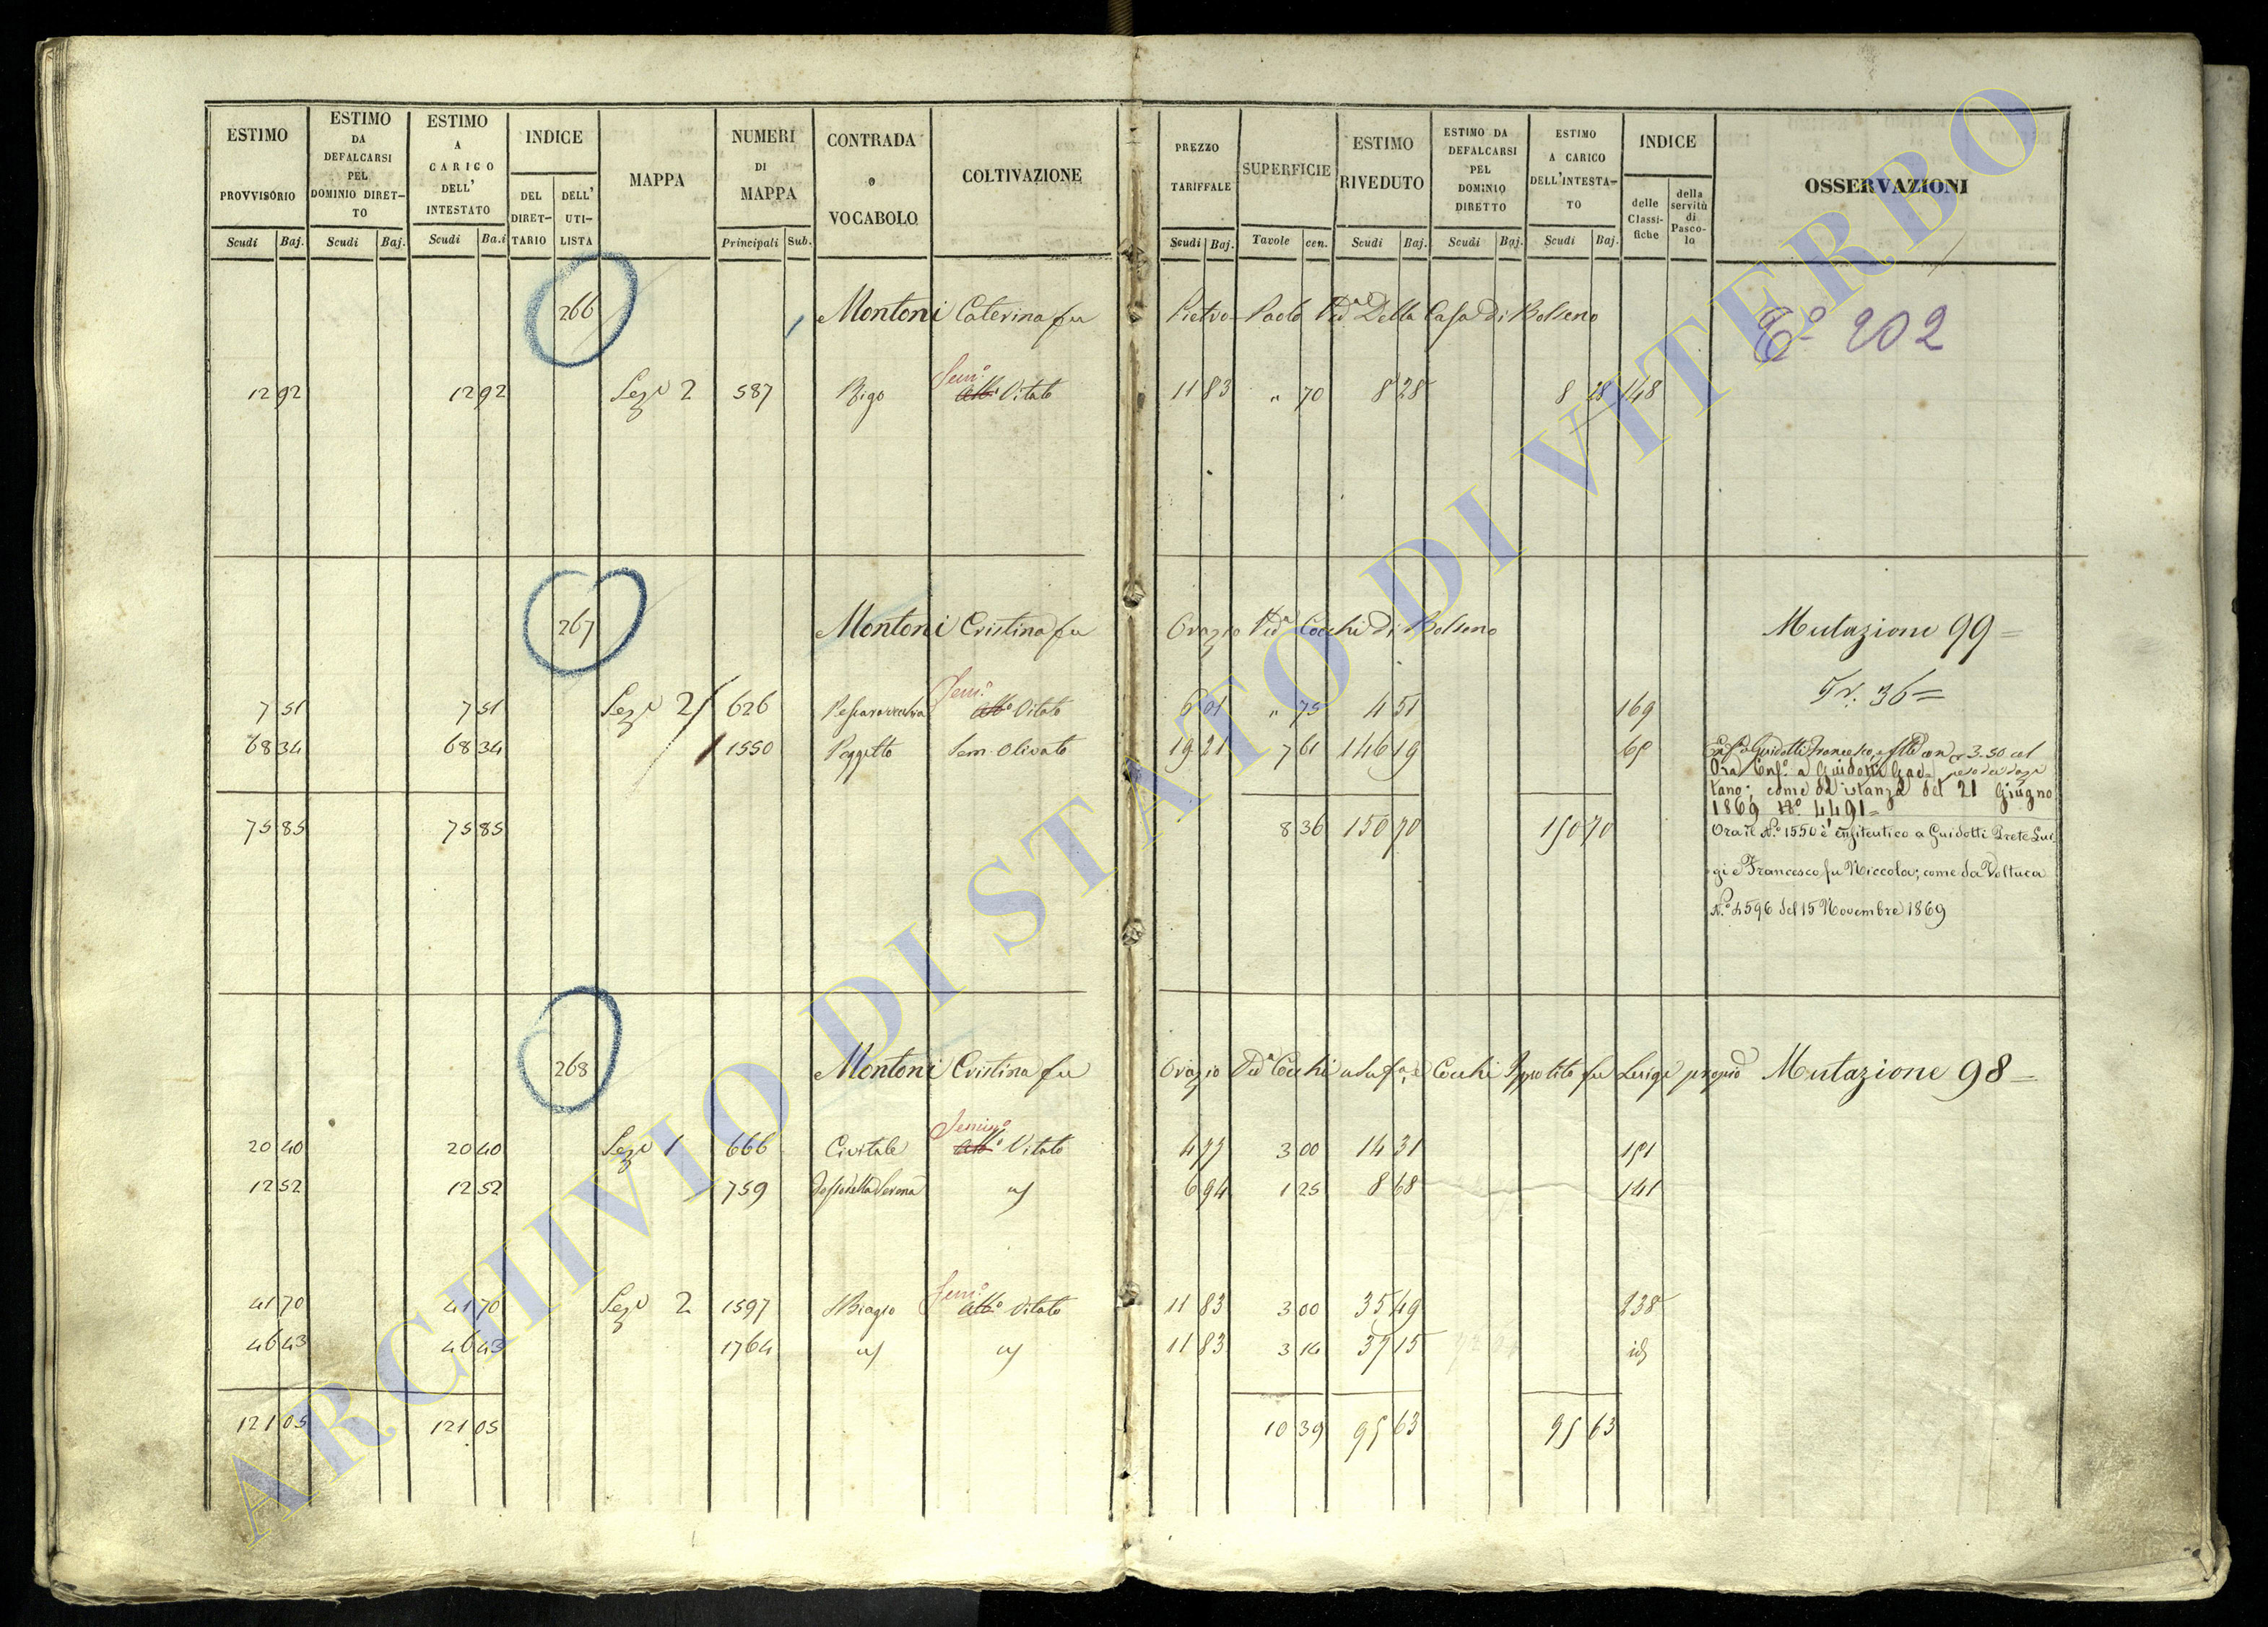 ESTIMO PROVVISORIO Scudi Baj.
ESTIMO DA DEFALCARSI PEL DOMINIO DIRETTO Scudi Baj.
ESTIMO A CARICO DELL' INTESTATO Scudi Ba.i
INDICE DEL DIRETTARIO DELL' UTILISTA
MAPPA
NUMERI DI MAPPA Principali Sub.
CONTRADA o VOCABOLO
COLTIVAZIONE
PREZZO TARIFFALE Scudi Baj.
SUPERFICIE Tavole cen.
ESTIMO RIVEDUTO Scudi Baj.
ESTIMO DA DEFALCARSI PEL DOMINIO DIRETTO Scudi Baj.
ESTIMO A CARICO DELL'INTESTATO Scudi Baj.
INDICE delle Classifiche della servitù di Pascolo
OSSERVAZIONI
266 Montoni Caterina fu Pietro Paolo Vedª Della Casa di Bolseno
Eº 202
12 92 12 92 Sezº 2 587 Semº Vitato 11 83 " 70 8 28 8 28 148
267 Montoni Cristina fu Orazio Vedª Cocchi di Bolseno Mutazione 99=
Tr. 36=
7 51 7 51 Sezº 2 626 Semº Vitato 6 01 " 75 4 51 169
68 34 68 34 1550 Poggetto Sem. Olivato 19 21 7 61 146 19
Guidotti Francesco 3.50 col
Ora Enfº a Guidotti Gae=
tano; come da istanza del 21 Giugno
1869 Nº 4491=
75 85 75 85 8 36 150 70 150 70
Ora il N.º 1550 è enfiteutico a Guidotti Prete Lui
gi e Francesco fu Niccola; come da Voltura
N.º 4596 del 15 Novembre 1869
268 Montoni Cristina fu Orazio Vedª Cocchi Cocchi Ippolito fu Luigi Mutazione 98=
20 40 20 40 Sezº 1 666 Civitale Semº Vitato 4 77 3 00 14 31 151
12 52 12 52 759 6 94 1 25 8 68 141
41 70 41 70 Sezº 2 1597 S Biagio Semº Vitato 11 83 3 00 35 49 138
46 43 46 43 1764 11 83 3 14 37 15 id
121 05 121 05 10 39 95 63 95 63
ARCHIVIO DI STATO DI VITERBO